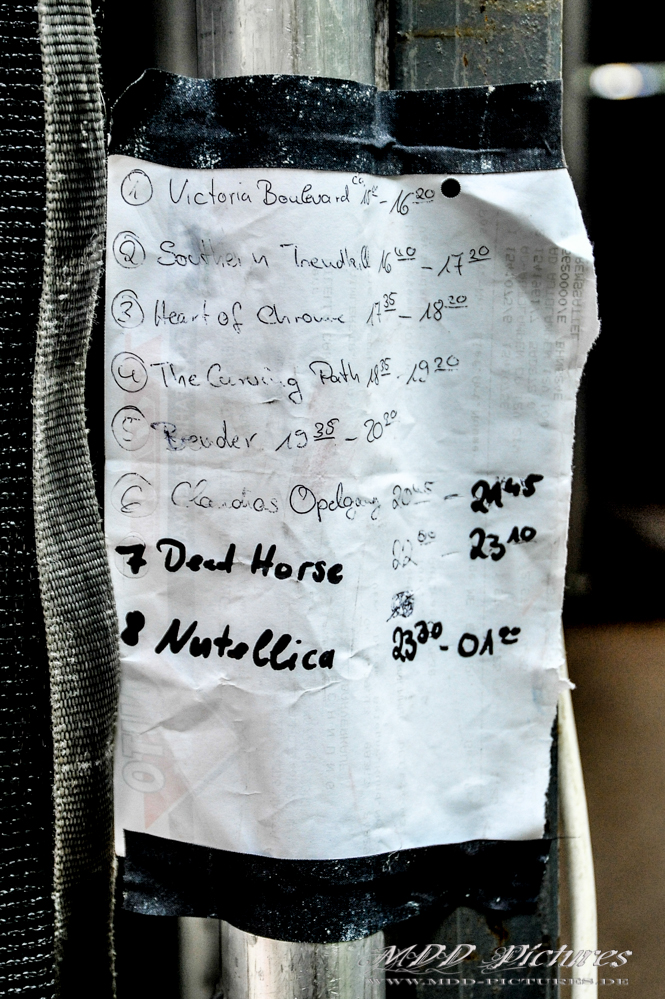 ① Victoria Boulevard ca - 16 20
② Southern Trendkill 16 40 - 17 20
③ Heart of Chrome 17 35 - 18 20
④ The Carving Path 18 35 - 19 20
⑤ Bender 19 35 - 20 20
⑥ Claudias Opelgang 20 45 - 21 45
7 Dead Horse 22 00 - 23 10
8 Nutellica 23 30 - 01 00
MDD Pictures
WWW.MDD-PICTURES.DE